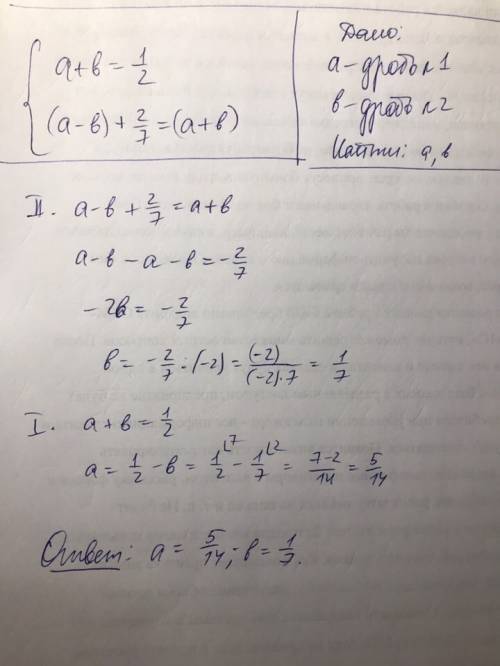 { a+в = 1/2
(a-в) + 2/7 = (a+в)
Дано:
a - дробь №1
в - дробь №2
Найти: a, в
II. a-в + 2/7 = a+в
a-в-a-в = -2/7
-2в = -2/7
в = -2/7 : (-2) = (-2)/((-2)·7) = 1/7
I. a+в = 1/2
a = 1/2 - в = 1/2 ⌊7 - 1/7 ⌊2 = (7-2)/14 = 5/14
Ответ: a = 5/14; в = 1/7.